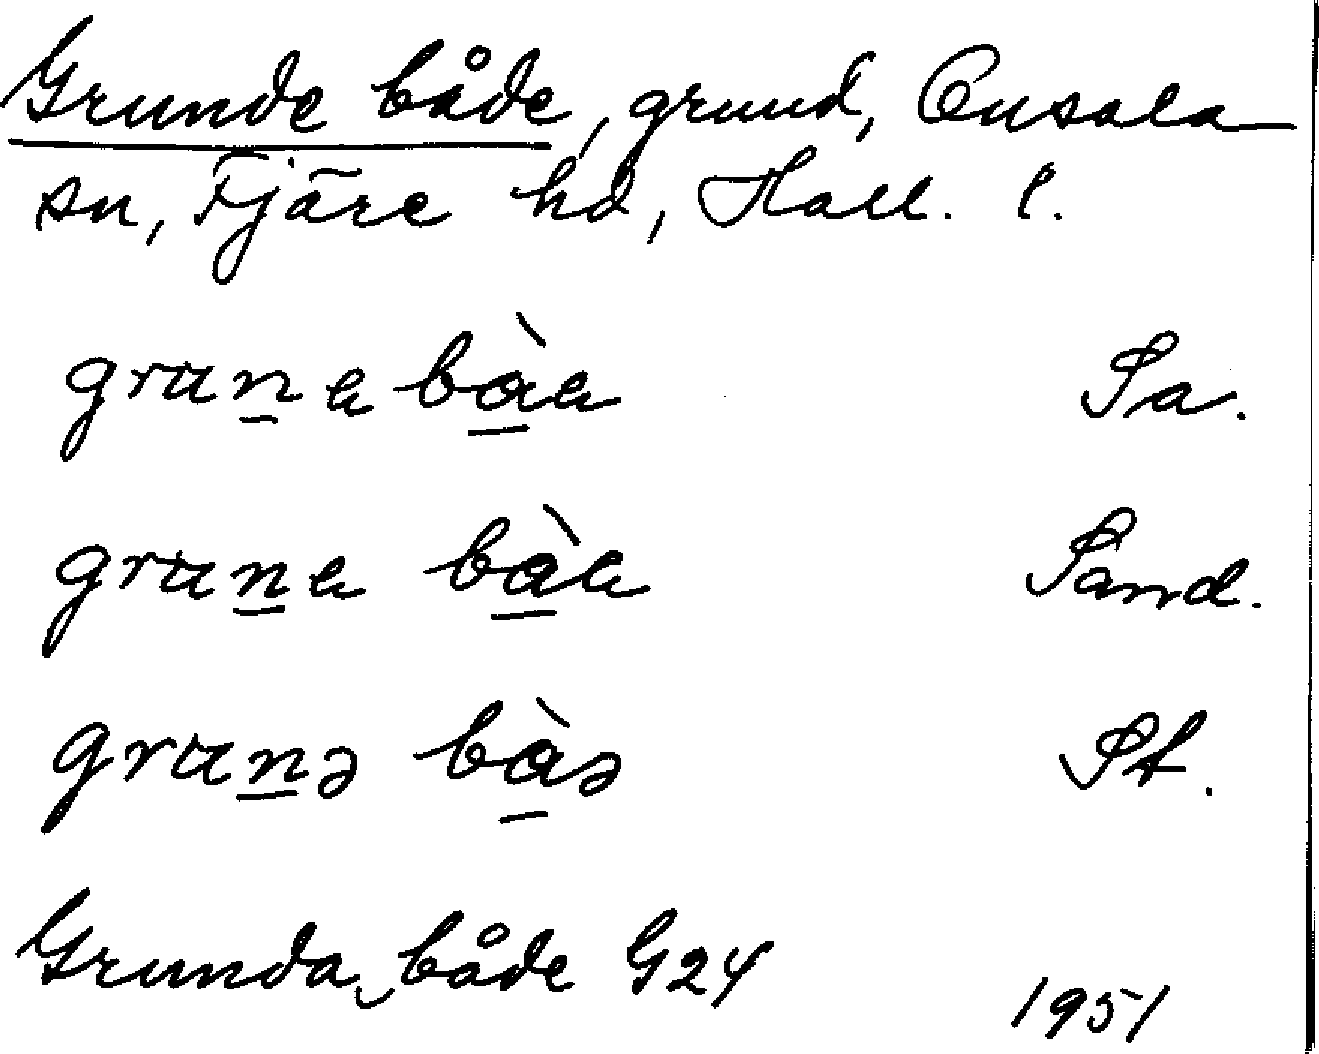 Grunde både, grund, Onsala
sn, Fjäre hd, Hall. l.
grune bàe Sa.
grune bàe Sand.
grunə bàə St.
Grunda både G24
1951